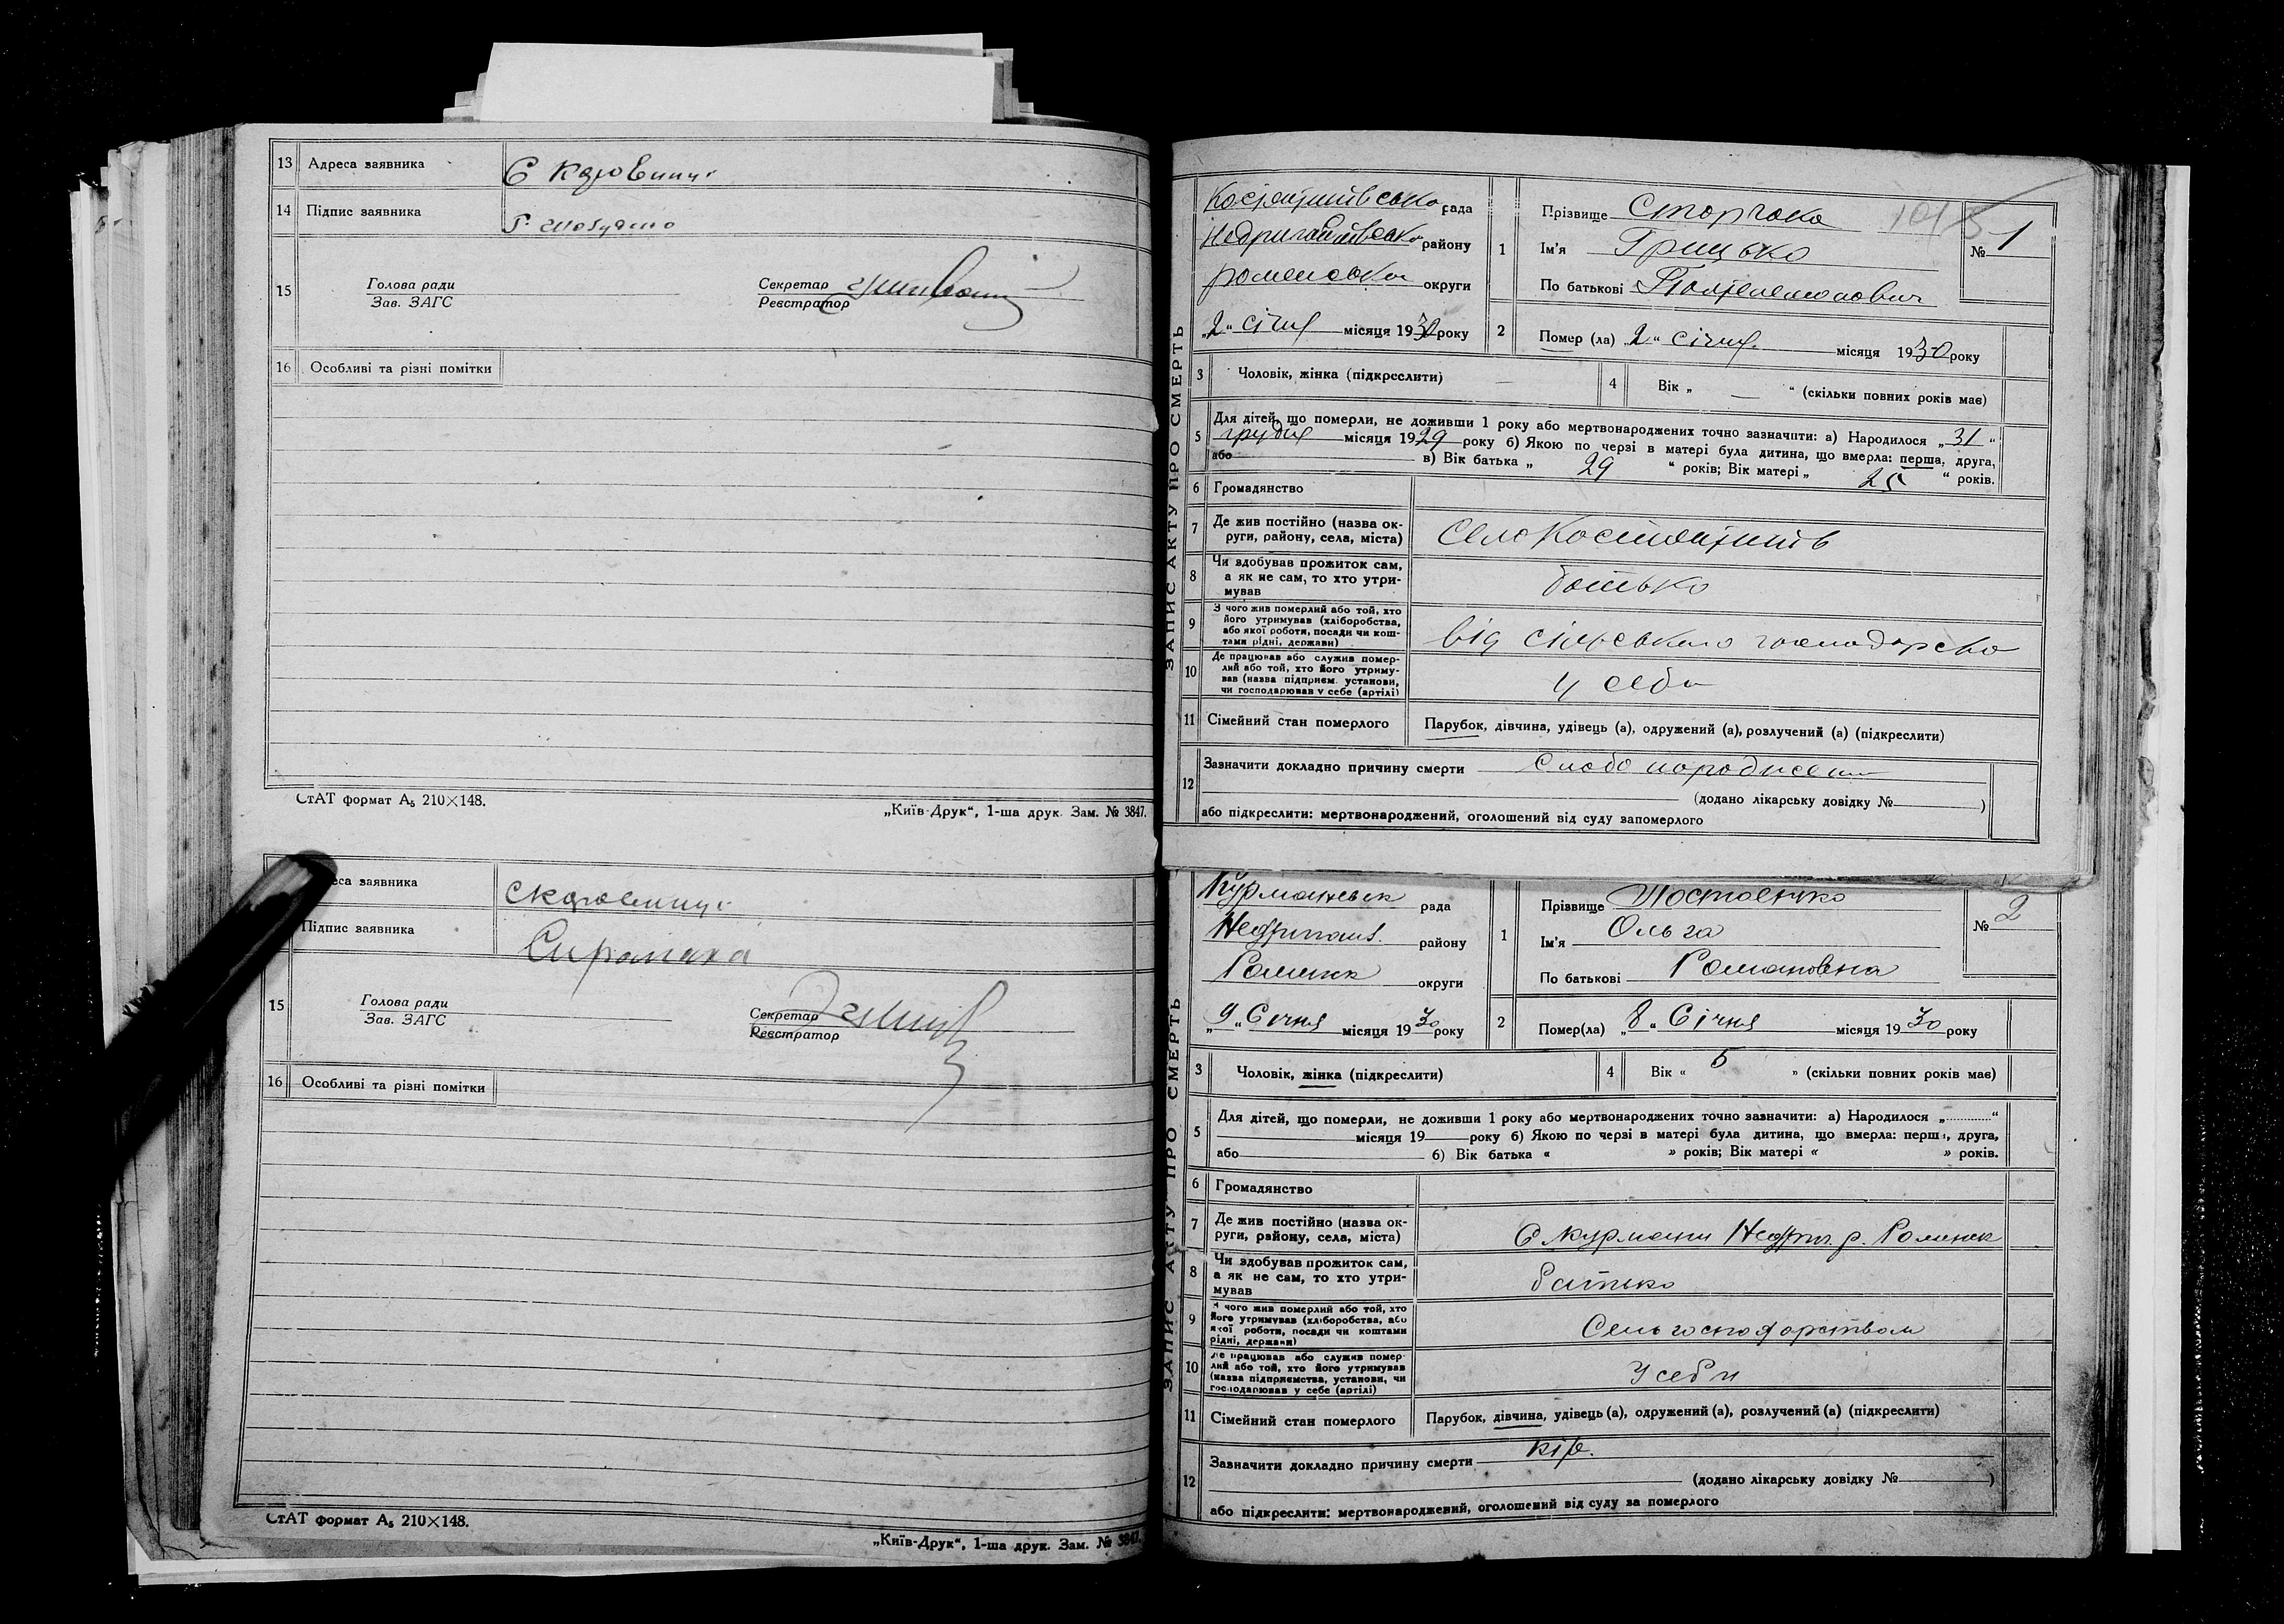 13 Адреса заявника
14 Підпис заявника
15 Голова ради
Зав. ЗАГС
Секретар
Реєстратор
16 Особливі та різні помітки
СтАТ формат А₅ 210×148.
„Київ-Друк“, 1-ша друк. Зам. № 3847.
еса заявника
Підпис заявника
15 Голова ради
Зав. ЗАГС
Секретар
Реєстратор
16 Особливі та різні помітки
СтАТ формат А₅ 210×148.
„Київ-Друк“, 1-ша друк. Зам. № 3847.
ЗАПИС АКТУ ПРО СМЕРТЬ
рада
району
округи
„2“ січня місяця 1930 року
1 Прізвище Сторчака
Ім'я Грицько
По батькові
№ 1
2 Помер (ла) „2“ січня місяця 1930 року
3 Чоловік, жінка (підкреслити) —
4 Вік „ — “ (скільки повних років має)
5 Для дітей, що померли, не доживши 1 року або мертвонароджених точно зазначити: а) Народилося „31“
грудня місяця 1929 року б) Якою по черзі в матері була дитина, що вмерла: перша, друга,
або в) Вік батька „ 29 “ років; Вік матері „ 25 “ років.
6 Громадянство
7 Де жив постійно (назва ок-
руги, району, села, міста)
Село
8 Чи здобував прожиток сам,
а як не сам, то хто утри-
мував
батько
9 З чого жив померлий або той, хто
його утримував (хліборобства,
або якої роботи, посади чи кош-
тами рідні, держави)
від
10 Де працював або служив помер-
лий або той, хто його утриму-
вав (назва підприєм. установи,
чи господарював у себе (артілі)
у себе
11 Сімейний стан померлого
Парубок, дівчина, удівець (а), одружений (а), розлучений (а) (підкреслити)
12 Зазначити докладно причину смерти
(додано лікарську довідку № )
або підкреслити: мертвонароджений, оголошений від суду запомерлого
ЗАПИС АКТУ ПРО СМЕРТЬ
рада
району
округи
„9“ Січня місяця 1930 року
1 Прізвище
Ім'я Ольга
По батькові Романовна
№ 2
2 Помер(ла) „8“ Січня місяця 1930 року
3 Чоловік, жінка (підкреслити)
4 Вік « 5 » (скільки повних років має)
5 Для дітей, що померли, не доживши 1 року або мертвонароджених точно зазначити: а) Народилося „ “
місяця 19 року б) Якою по черзі в матері була дитина, що вмерла: перш, друга,
або б) Вік батька « » років; Вік матері « » років.
6 Громадянство
7 Де жив постійно (назва ок-
руги, району, села, міста)
8 Чи здобував прожиток сам,
а як не сам, то хто утри-
мував
батько
9 чого жив померлий або той, хто
його утримував (хліборобства, або
якої роботи, посади чи коштами
рідні, держави)
Сель господарством
10 Де працював або служив помер-
лий або той, хто його утримував
(назва підприємства, установи, чи
господарював у себе (артілі)
У себе
11 Сімейний стан померлого
Парубок, дівчина, удівець (а), одружений (а), розлучений (а) (підкреслити)
12 Зазначити докладно причину смерти кір.
(додано лікарську довідку № )
або підкреслити: мертвонароджений, оголошений від суду за померлого